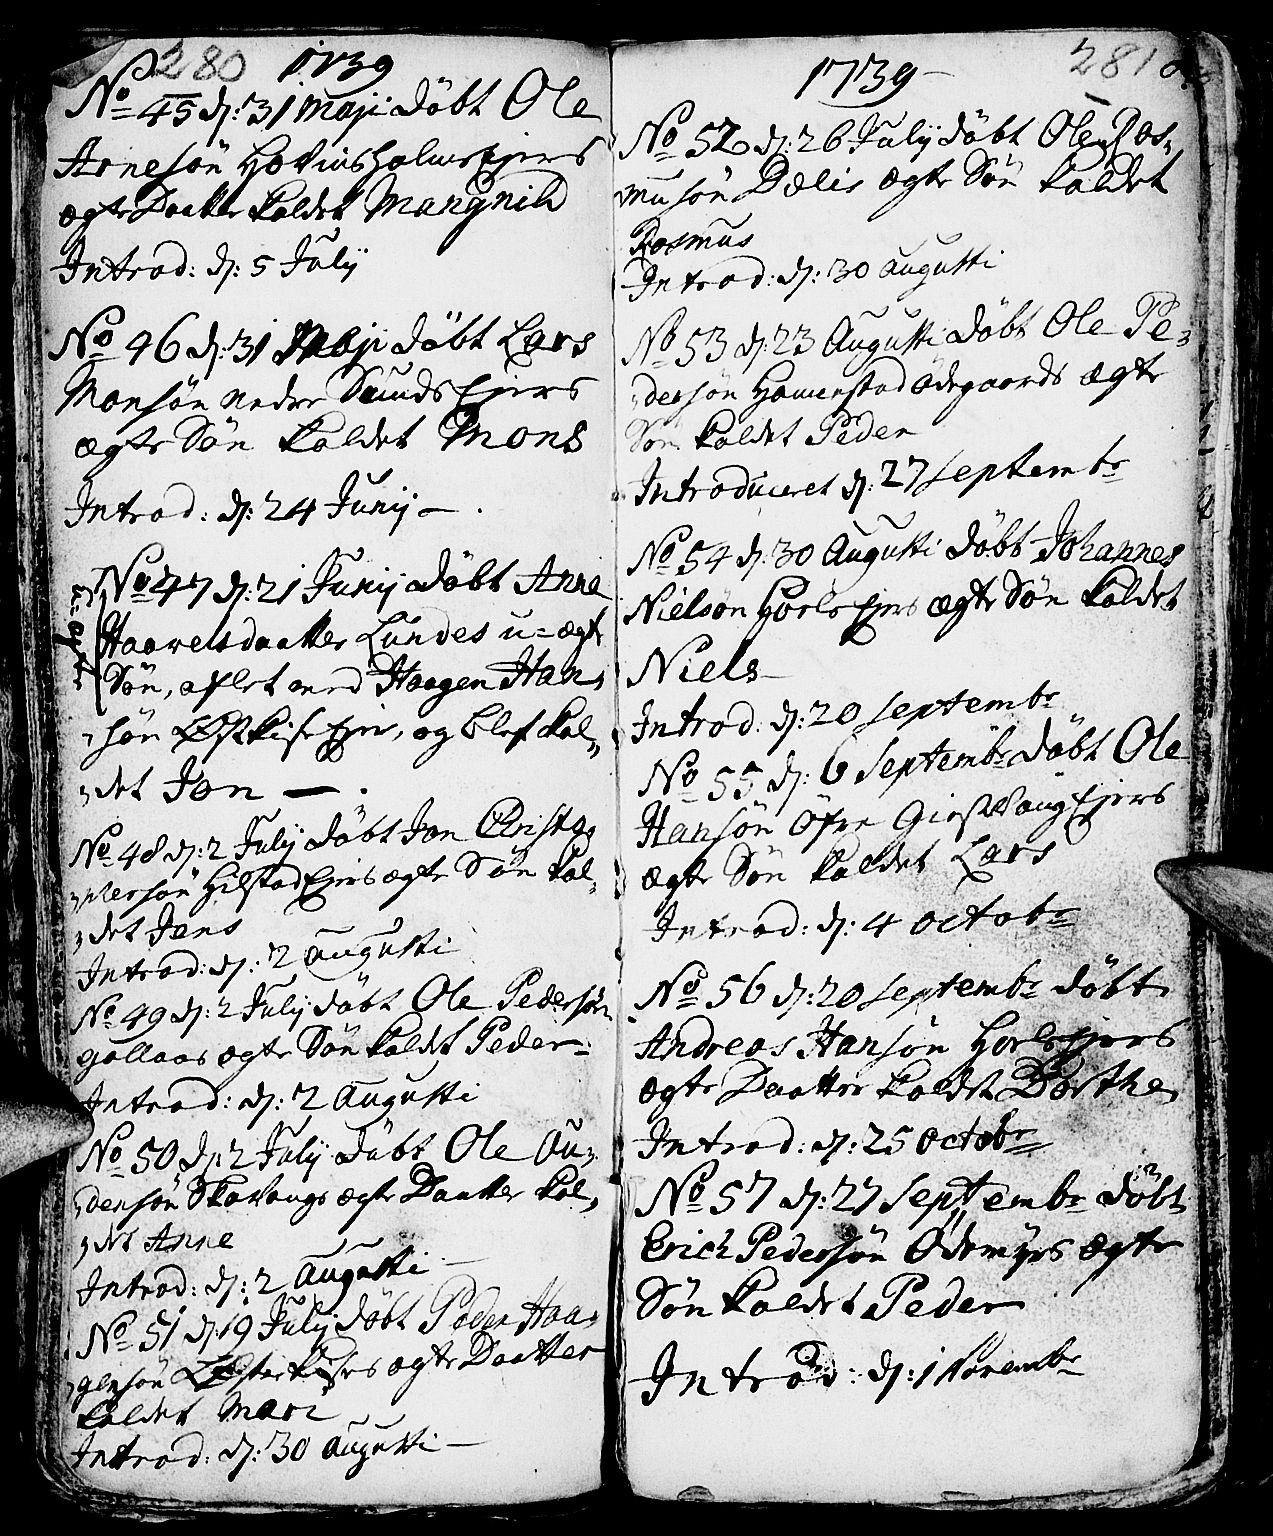 280 1739
No 45 d: 31 Maji döbt Ole
Arnesön Hovinsholms Ejers
ægte Daatter kaldet Mangnild
Introd: d: 5 July
No 46 d: 31 Maji döbt Lars
Monsön nedre Sunds Ejers
ægte Sön kaldet Mons
Introd: d: 24 Junij
No 47 d: 21 Junij döbt Anne
Haavelsdaatter Lundes u-ægte
u-ægte
Sön, aflet med Haagen Han-
sön Ejer, og blef kal-
det Jon
No 48 d: 2 July döbt Jon Christo-
phersön Hilstad Ejers ægte Sön kal-
det Jens
Introd: d: 2 Augusti
No 49 d: 2 July döbt Ole Pedersön
gallaas ægte Sön kaldet Peder
Introd: d: 2 Augusti
No 50 d: 2 July döbt Ole Au-
densön Skavangs ægte Daatter kal-
det Anne
Introd: d: 2 Augusti
No 51 d: 19 July döbt Peder Haa-
gensön ægte Daatter
kaldet Mari
Introd: d: 30 Augusti
1739 281
No 52 d: 26 July döbt Ole Ras-
musön Dælis ægte Sön kaldet
Rasmus
Introd: d: 30 Augusti
No 53 d: 23 Augusti döbt Ole Pe-
dersön Hamerstad ödegaards ægte
Sön kaldet Peder
Introduceret d: 27 Septembr
No 54 d: 30 Augusti döbt Johannes
Nielsön Horls Ejers ægte Sön kaldet
Niels
Introd: d: 20 Septembr
No 55 d: 6 Septembr döbt Ole
Hansön öfre Giestvang Ejers
ægte Sön kaldet Lars
Introd: d: 4 Octobr
No 56 d: 20 Septembr döbt
Andreas Hansön Horls Ejers
ægte Daatter kaldet Dorthe
Introd: d: 25 Octobr
No 57 d: 27 Septembr döbt
Erich Pedersön Ödemyrs ægte
Sön kaldet Peder
Introd: d: 1 Novembr